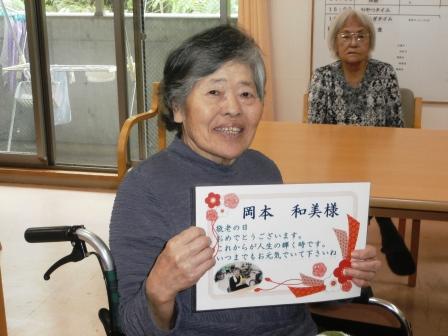 岡本　和美様
敬老の日
おめでとうございます。
これからが人生の輝く時です。
いつまでもお元気でいて下さいね